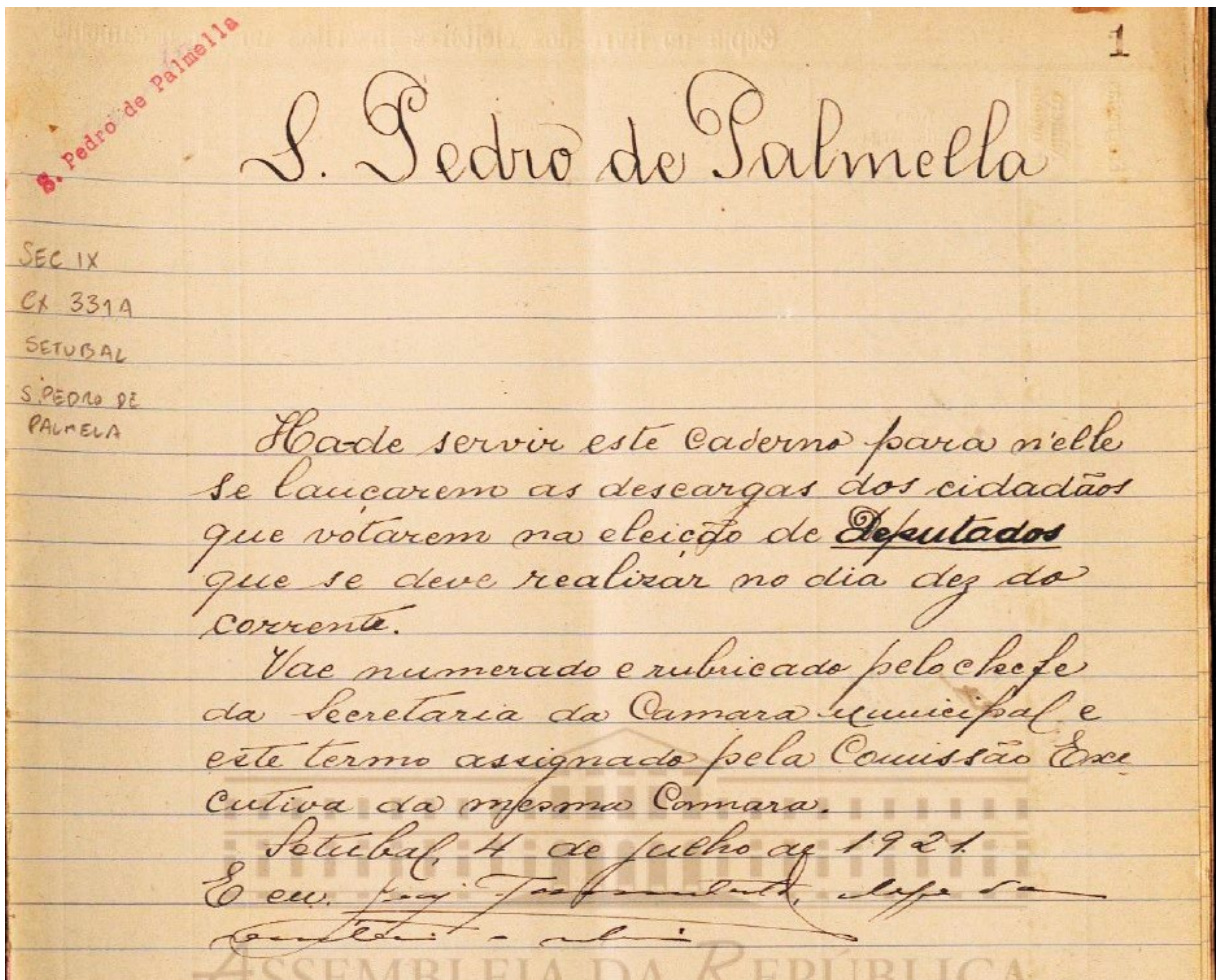 1
S. Pedro de Palmella
S. Pedro de Palmella
SEC IX
CX 331A
SETUBAL
S. PEDRO DE
PALMELA
Ha-de servir este caderno para n'elle
se lançarem as descargas dos cidadãos
que votarem na eleição de Deputados
que se deve realizar no dia dez do
corrente.
Vae numerado e rubricado pelo chefe
da Secretaria da Camara Municipal e
este termo assignado pela Comissão Exe
cutiva da mesma Camara.
Setubal, 4 de julho de 1921.
E eu,
ASSEMBLEIA DA REPÚBLICA